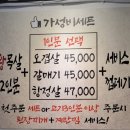 가성비세트
1인분 선택
오겹살 45,000
갈매기 45,000
항정살 47,000
2인분
+
+
서비스
천주문 세트 or 고기3인분이상 주문시
된장찌개 + 계란찜 서비스